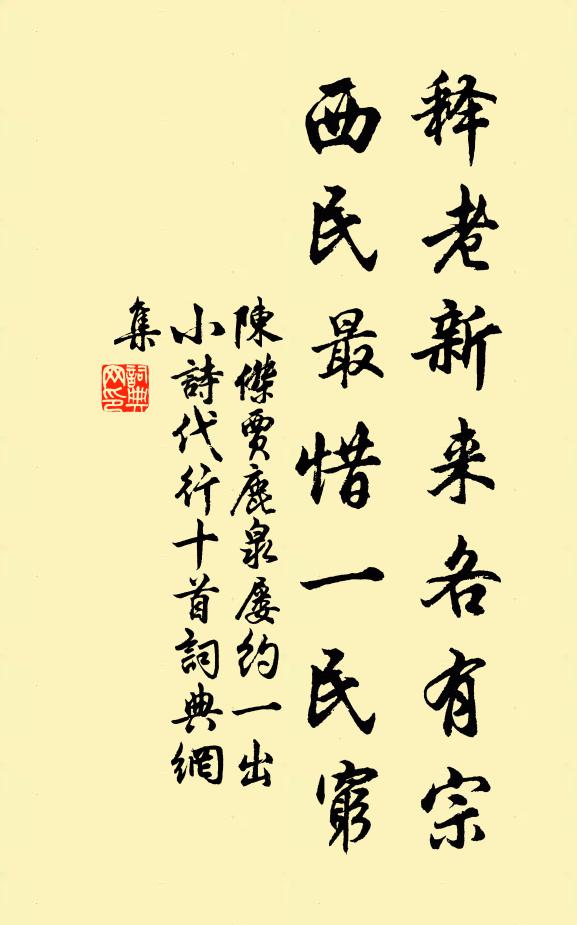 释老新来各有宗
西民最惜一民窮
陳傑賈鹿泉屡約一出
小詩代行十首詞典網
集
詞典
网印